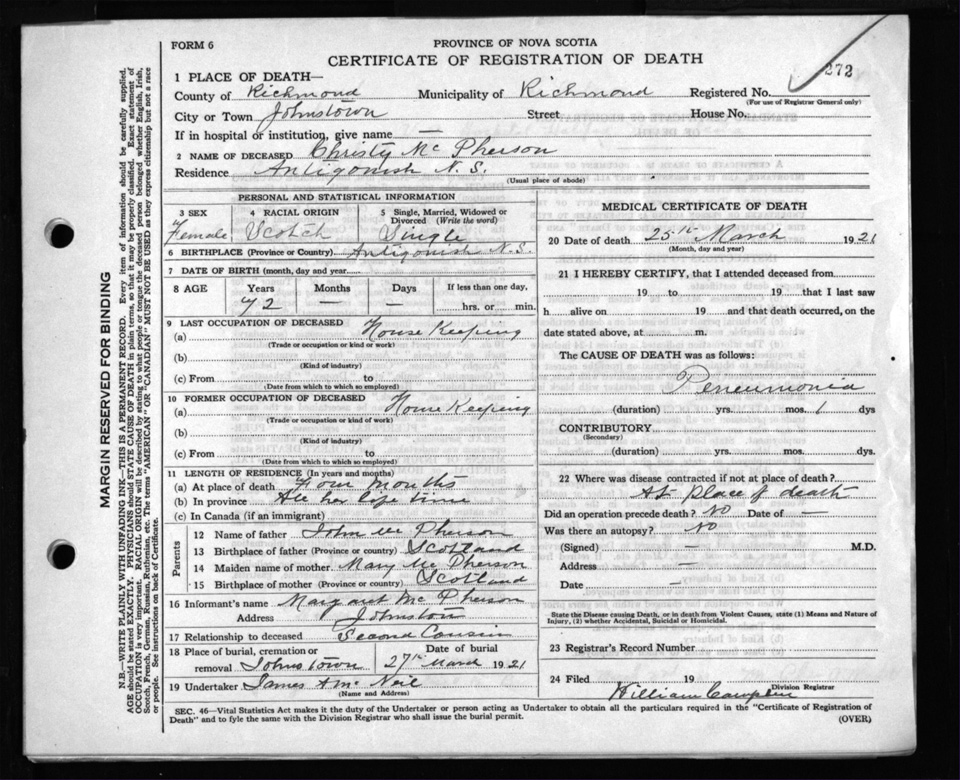 FORM 6
PROVINCE OF NOVA SCOTIA
CERTIFICATE OF REGISTRATION OF DEATH
272
1 PLACE OF DEATH—
County of Richmond Municipality of Richmond Registered No.
(For use of Registrar General only)
City or Town Johnstown Street House No.
If in hospital or institution, give name —
2 NAME OF DECEASED Christy Mc Pherson
Residence Antigonish N.S.
(Usual place of abode)
PERSONAL AND STATISTICAL INFORMATION
3 SEX
Female
4 RACIAL ORIGIN
Scotch
5 Single, Married, Widowed or
Divorced (Write the word)
Single
6 BIRTHPLACE (Province or Country) Antigonish N.S.
7 DATE OF BIRTH (month, day and year)
8 AGE Years Months Days If less than one day,
72 — — hrs. or min.
9 LAST OCCUPATION OF DECEASED
(a) House Keeping
(Trade or occupation or kind or work)
(b)
(Kind of industry)
(c) From to
(Date from which to which so employed)
10 FORMER OCCUPATION OF DECEASED
(a) House Keeping
(Trade or occupation or kind of work)
(b)
(Kind of industry)
(c) From to
(Date from which to which so employed)
11 LENGTH OF RESIDENCE (In years and months)
(a) At place of death Four Months
(b) In province All her life time
(c) In Canada (if an immigrant)
Parents
12 Name of father John Mc Pherson
13 Birthplace of father (Province or country) Scotland
14 Maiden name of mother Mary Mc Pherson
15 Birthplace of mother (Province or country) Scotland
16 Informant's name Margaret Mc Pherson
Address Johnston
17 Relationship to deceased Second Cousin
18 Place of burial, cremation or
removal Johnstown
Date of burial
27th March 1921
19 Undertaker James A Mc Neil
(Name and Address)
MEDICAL CERTIFICATE OF DEATH
20 Date of death 25th March 1921
(Month, day and year)
21 I HEREBY CERTIFY, that I attended deceased from
19 to 19 that I last saw
h alive on 19 and that death occurred, on the
date stated above, at m.
The CAUSE OF DEATH was as follows:
Peneumonia
(duration) yrs. mos. 1 dys
CONTRIBUTORY
(Secondary)
(duration) yrs. mos. dys.
22 Where was disease contracted if not at place of death?
At place of death
Did an operation precede death? No Date of —
Was there an autopsy? No
(Signed) — M.D.
Address —
Date —
State the Disease causing Death, or in death from Violent Causes, state (1) Means and Nature of
Injury, (2) whether Accidental, Suicidal or Homicidal.
23 Registrar's Record Number
24 Filed 19
William
Division Registrar
SEC. 46—Vital Statistics Act makes it the duty of the Undertaker or person acting as Undertaker to obtain all the particulars required in the "Certificate of Registration of
Death" and to fyle the same with the Division Registrar who shall issue the burial permit.
(OVER)
MARGIN RESERVED FOR BINDING
N.B.—WRITE PLAINLY WITH UNFADING INK—THIS IS A PERMANENT RECORD. Every item of information should be carefully supplied.
AGE should be stated EXACTLY. PHYSICIANS should STATE CAUSE OF DEATH in plain terms, so that it may be properly classified. Exact statement of
OCCUPATION is very important. RACIAL ORIGIN will be described by stating to what people or tongue the deceased person belonged whether English, Irish,
Scotch, French, German, Russian, Ruthenian, etc. The terms "AMERICAN" OR "CANADIAN" MUST NOT BE USED as they express citizenship but not a race
or people. See instructions on back of Certificate.